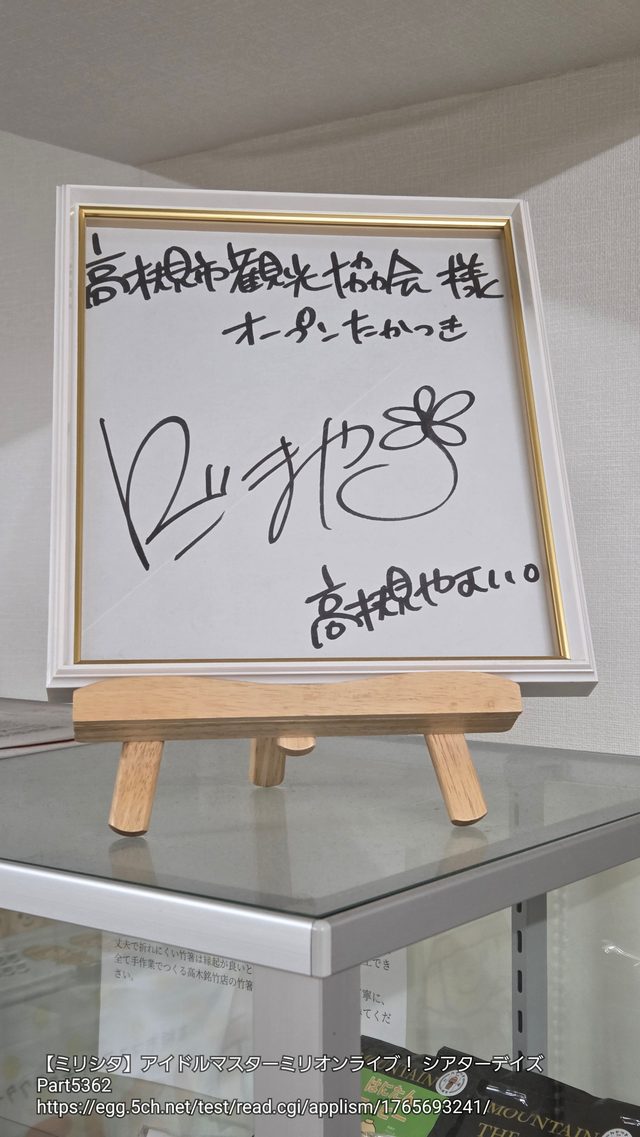 高槻市観光協会 様
オープンたかつき
高槻やよい。
丈夫で折れにくい竹箸は縁起が良いと
全て手作業でつくる高木銘竹店の竹箸
さい。
はにたん
MOUNTAIN
THE
【ミリシタ】アイドルマスターミリオンライブ！ シアターデイズ
Part5362
https://egg.5ch.net/test/read.cgi/applism/1765693241/